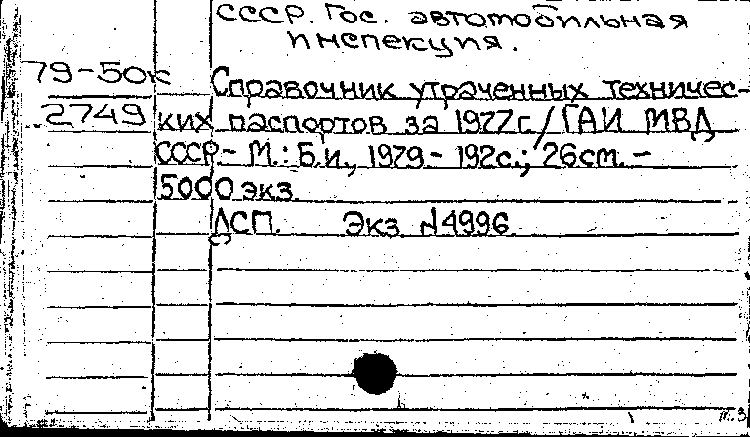 СССР. Гос. автомобильная
инспекция.
79-50к
Справочник утраченных техничес-
2749
ких паспортов за 1977г./ГАИ МВД
СССР.- М.: Б.и., 1979.- 192с.; 26см. -
5000 экз.
ДСП. Экз. №4996